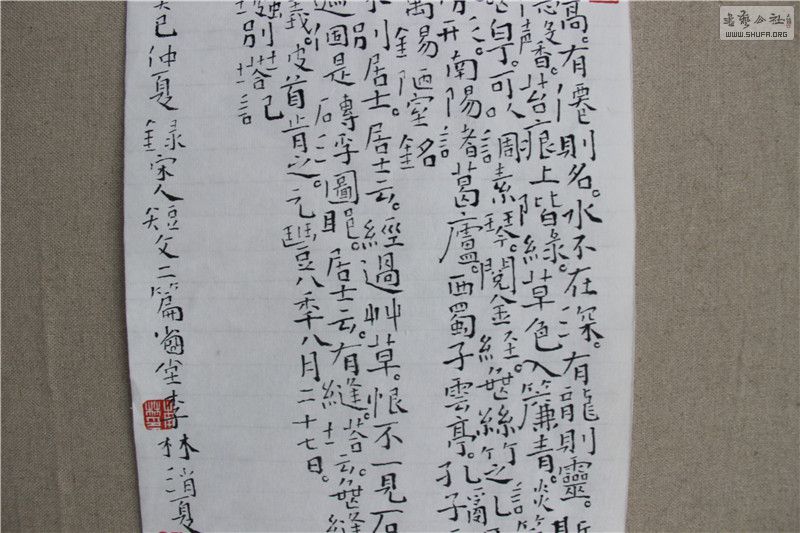 高。有僊則名。水不在深。有龍則靈。斯
馨。苔痕上皆綠。草色入簾青。談笑
白丁。可以調素琴。閱金經。無絲竹之亂
形。南陽諸葛廬。西蜀子雲亭。孔子
陋室銘
別居士。居士云。經過艸草。恨不一見石
是專乎圖耶。居士云。有縫塔。塔云無縫
蟻。坡首肯之。元豐八年八月二十七日。
別塔記
癸巳仲夏錄宋人短文二篇 堂李林消夏
書藝公社
WWW.SHUFA.ORG